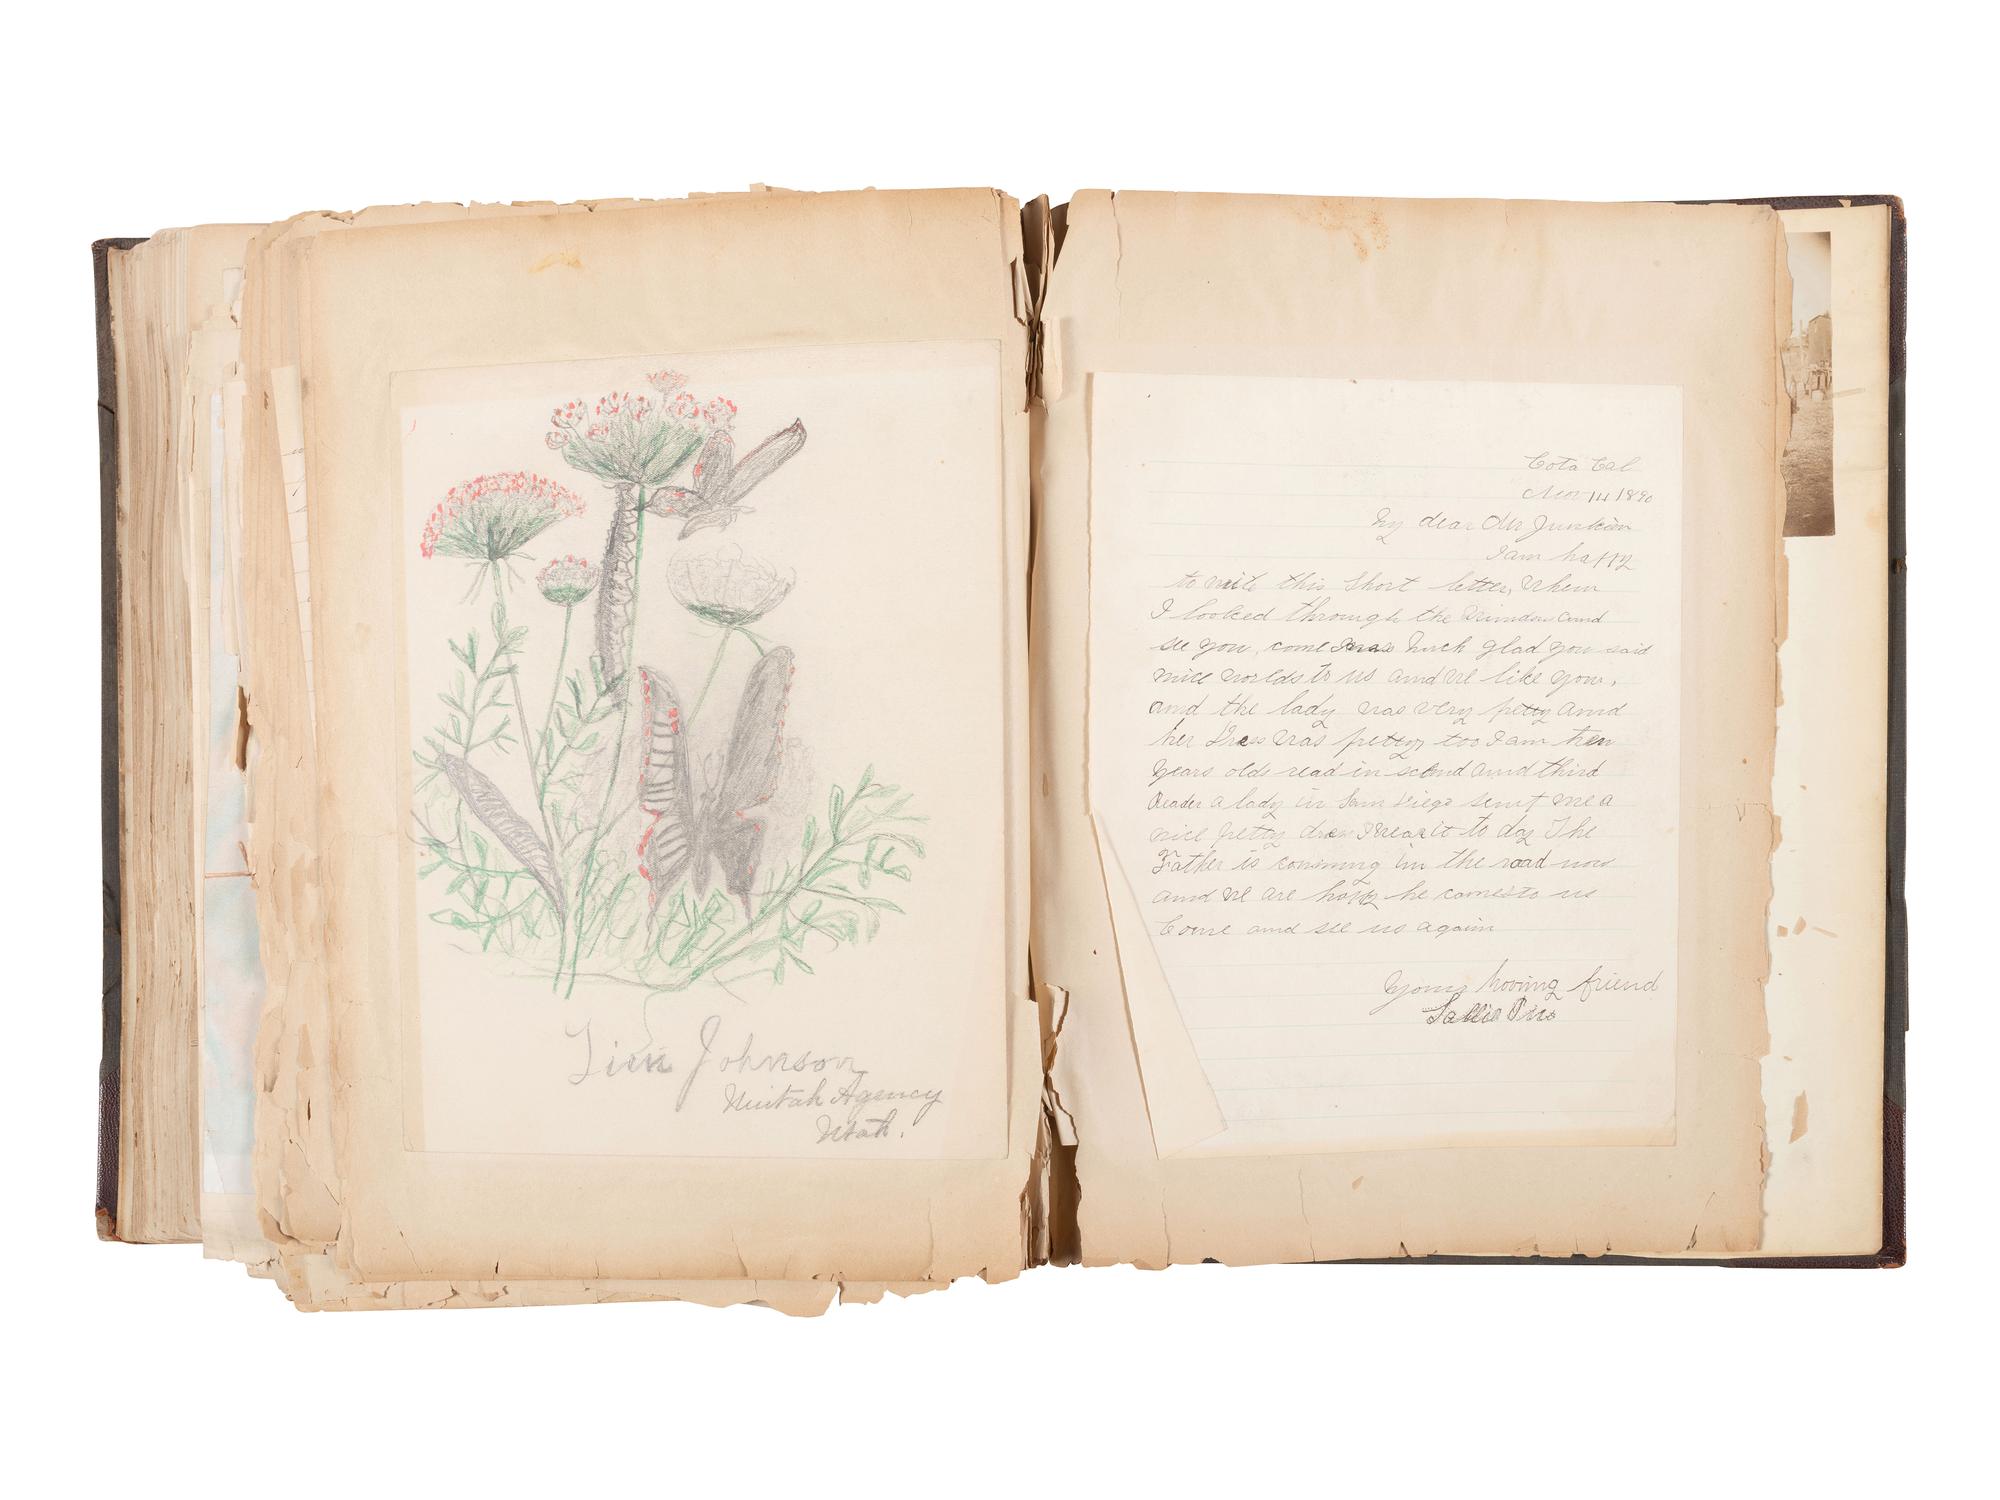 Johnson
Uintah Agency
Utah.
Cota Cal
Nov 14 1890
My dear Mr Junkin
I am happy
to write this short letter, When
I looked through the Window and
see you, come I was much glad you said
nice worlds to us and we like you,
and the lady was very petty and
her dress was pretty too I am ten
years olds read in second and third
Reader a lady in San Diego sent me a
nice petty dress I wear it to day The
Father is comming in the road now
and we are happy he comes to us
Come and see us again
Your loving friend
Sallie